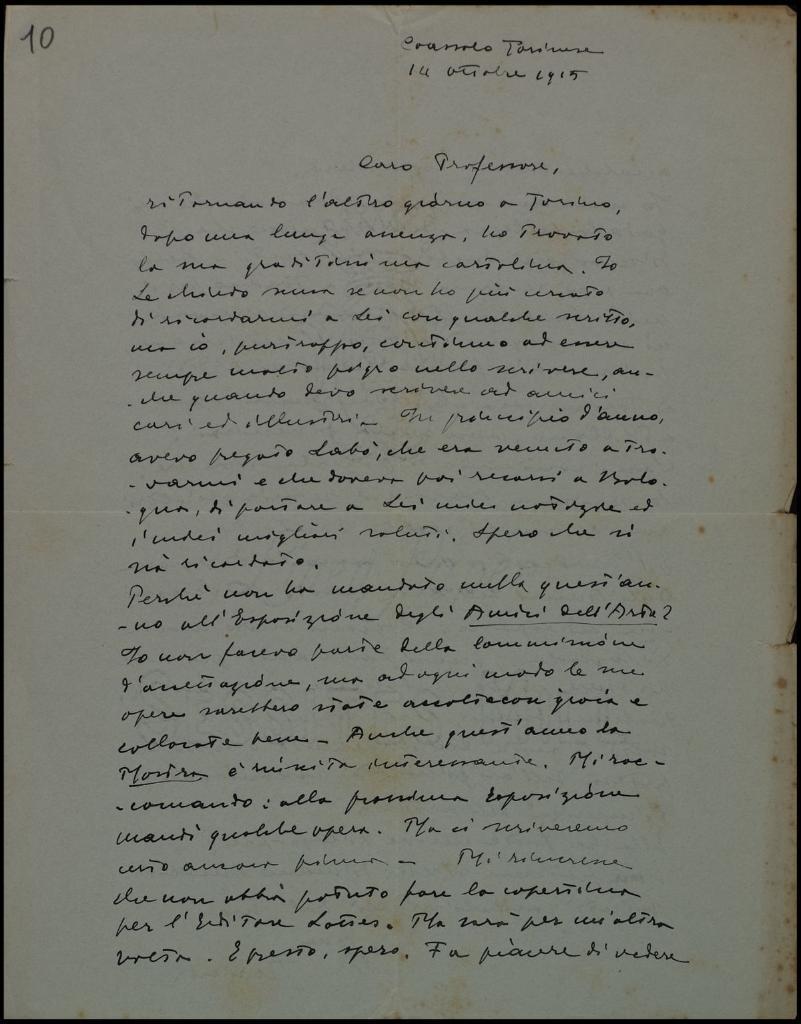 10
Coassolo Torinese
14 ottobre 1915
Caro Professore,
ritornando l'altro giorno a Torino,
dopo una lunga assenza, ho trovato
la sua graditissima cartolina. Io
Le chiedo scusa se non ho più cercato
di ricordarmi a Lei con qualche scritto,
ma io, purtroppo, continuo ad essere
sempre molto pigro nello scrivere, an-
-che quando devo scrivere ad amici
cari ed illustri - In principio d'anno,
avevo pregato Labò, che era venuto a tro-
-varmi e che doveva poi recarsi a Bolo-
-gna, di portare a Lei mie notizie ed
i miei migliori saluti. Spero che si
sia ricordato.
Perchè non ha mandato nulla quest'an-
-no all'Esposizione degli Amici dell'Arte?
Io non facevo parte della Commissione
d'accettazione, ma ad ogni modo le sue
opere sarebbero state accolte con gioia e
collocate bene - Anche quest'anno la
Mostra è riuscita interessante. Mi rac-
-comando: alla prossima Esposizione
mandi qualche opera. Ma ci scriveremo
certo ancora prima - Mi rincresce
che non abbia potuto fare la copertina
per l'Editore Lattes. Ma sarà per un'altra
volta. E presto, spero. Fa piacere di vedere